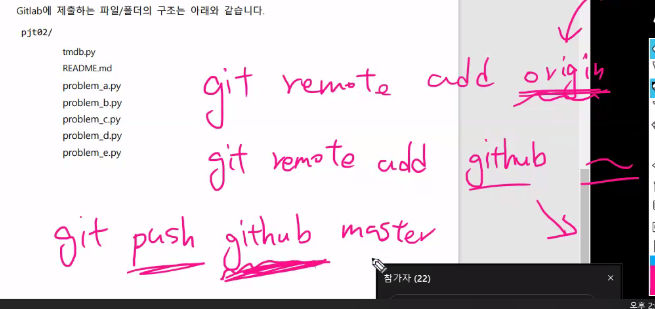 Gitlab에 제출하는 파일/폴더의 구조는 아래와 같습니다.
pjt02/
tmdb.py
README.md
problem_a.py
problem_b.py
problem_c.py
problem_d.py
problem_e.py
git remote add origin
git remote add github
git push github master
참가자 (22)